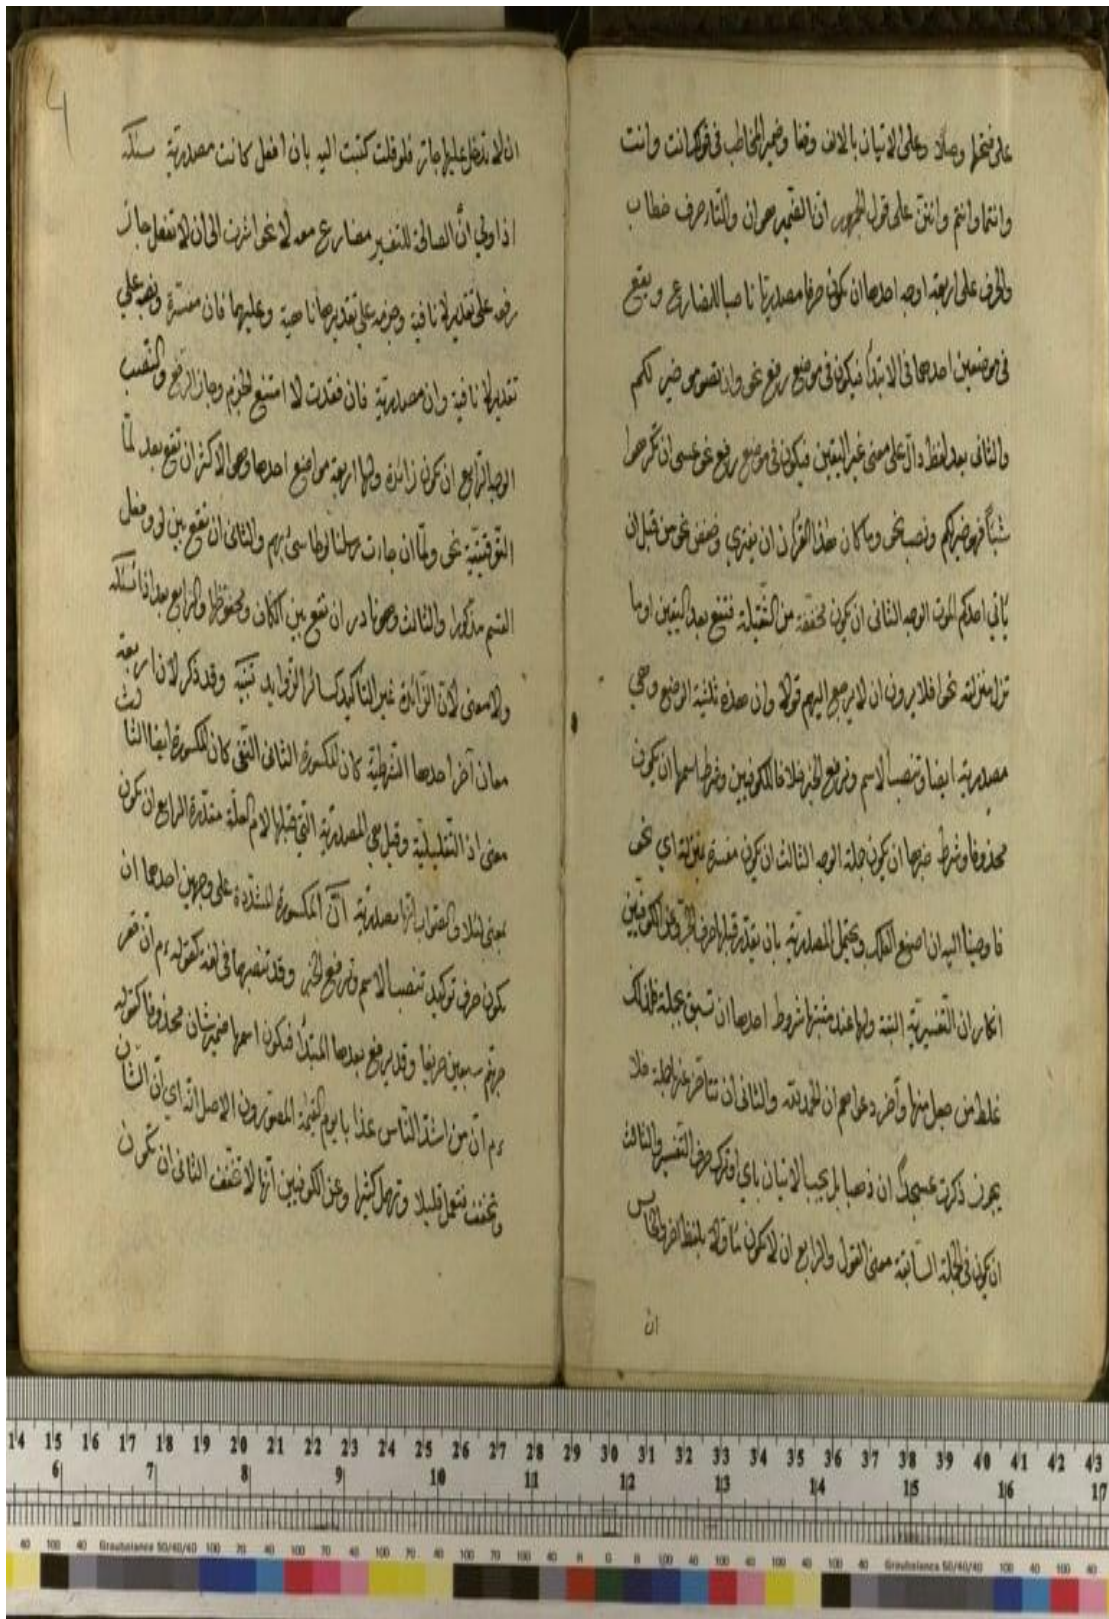 على فتحها وصلا وعلى الاتيان بالالف وقفا وضمير المخاطب فى قولك انت وانت
وانتما وانتم وانتن على قول الجمهور ان الضمير هو ان والتاء حرف خطاب
والحرف على اربعة اوجه احدها ان يكون حرفا مصدريا ناصبا للمضارع ويقع
فى موضعين احدهما فى الابتدأ فيكون فى موضع رفع نحو وان تصوموا خير لكم
والثانى بعد لفظ دالّ على معنى غير اليقين فيكون فى موضع رفع نحو عسى ان تكرهوا
شيئاً فهو خير لكم ونصب نحو وما كان هذا القرأن ان يفترى وخفض نحو من قبل ان
يأتي احدكم الموت الوجه الثانى ان يكون مخففة من الثّقيلة فتقع بعد اليقين او ما
نزل منزلته نحو افلا يرون ان لا يرجع اليهم قولا وان هذه ثلثية الوضع وهي
مصدرية ايضا وتنصب الاسم وترفع الخبر خلافا للكوفيين وشرط اسمها ان يكون
محذوفا وشرط خبرها ان يكون جملة الوجه الثالث ان يكون مفسرة بمنزلة اي نحو
فاوحينا اليه ان اصنع الفلك ويحتمل المصدرية بان يقدّر قبلها حرف الجرّ وعن الكوفيين
انكار ان التّفسيرية البتة ولها عند مثبتها شروط احدها ان تسبق بجملة فلذلك
غلط من جعل منها وآخر دعواهم ان الحمد لله والثانى ان تتأخر عنها جملة فلا
يجوز ذكرت عسجداً ان ذهبا بل يجب الاتيان باي او ترك حرف التفسير والثالث
ان يكون فى الجملة السّابقة معنى القول والرابع ان لا يكون
ان
4
ان لا تدخل عليها جارّ فلو قلت كتبت اليه بان افعل كانت مصدرية مسئلة
اذا ولي ان الصالحة للتفسير مضارع معه لا نحو اشرت الى ان لا تفعل جاز
رفعه على تقدير لا نافية وجزمه على تقديرها ناهية وعليهما فان مفسّرة ونصبه على
تقدير لا نافية وان مصدرية فان فقدت لا امتنع الجزم وجاز الرفع والنّصب
الوجه الرّابع ان تكون زائدة ولها اربعة مواضع احدها وهو الاكثر ان تقع بعد لمّا
التّوقيتيّة نحو ولمّا ان جاءت رسلنا لوطا سىء بهم والثانى ان تقع بين لو وفعل
القسم مذكورا والثالث وهو نادر ان تقع بين الكاف ومخفوظها والرابع بعد اذا مسئلة
ولا معنى لان الزّائدة غير التأكيد كسائر الزّوايد تنبيه وقد ذكر لان اربعة
معان آخر احدها الشّرطية كان المكسورة الثانى النّفى كان المكسورة ايضا الثالث
معنى اذ التّعليليّة وقيل هي المصدرية التي قبلها لام العلّة مقدّرة الرابع ان يكون
بمعنى لئلا والصّواب انّها مصدرية انّ المكسورة المشدّدة على وجهين احدهما ان
يكون حرف توكيد تنصب الاسم وترفع الخبر وقد تنصبهما فى لغة كقوله ءم ان قعر
جهنّم سبعين خريفا وقد يرفع بعدها المبتدأ فيكون اسمها ضمير شان محذوفا كقوله
ءم انّ من اشدّ النّاس عذابا يوم القيمة المصورون الاصل انّه اي انّ الشّان
وتخفّف فتعمل قليلا وتهمل كثيرا وعن الكوفيين انّها لا تخفّف الثانى ان تكون